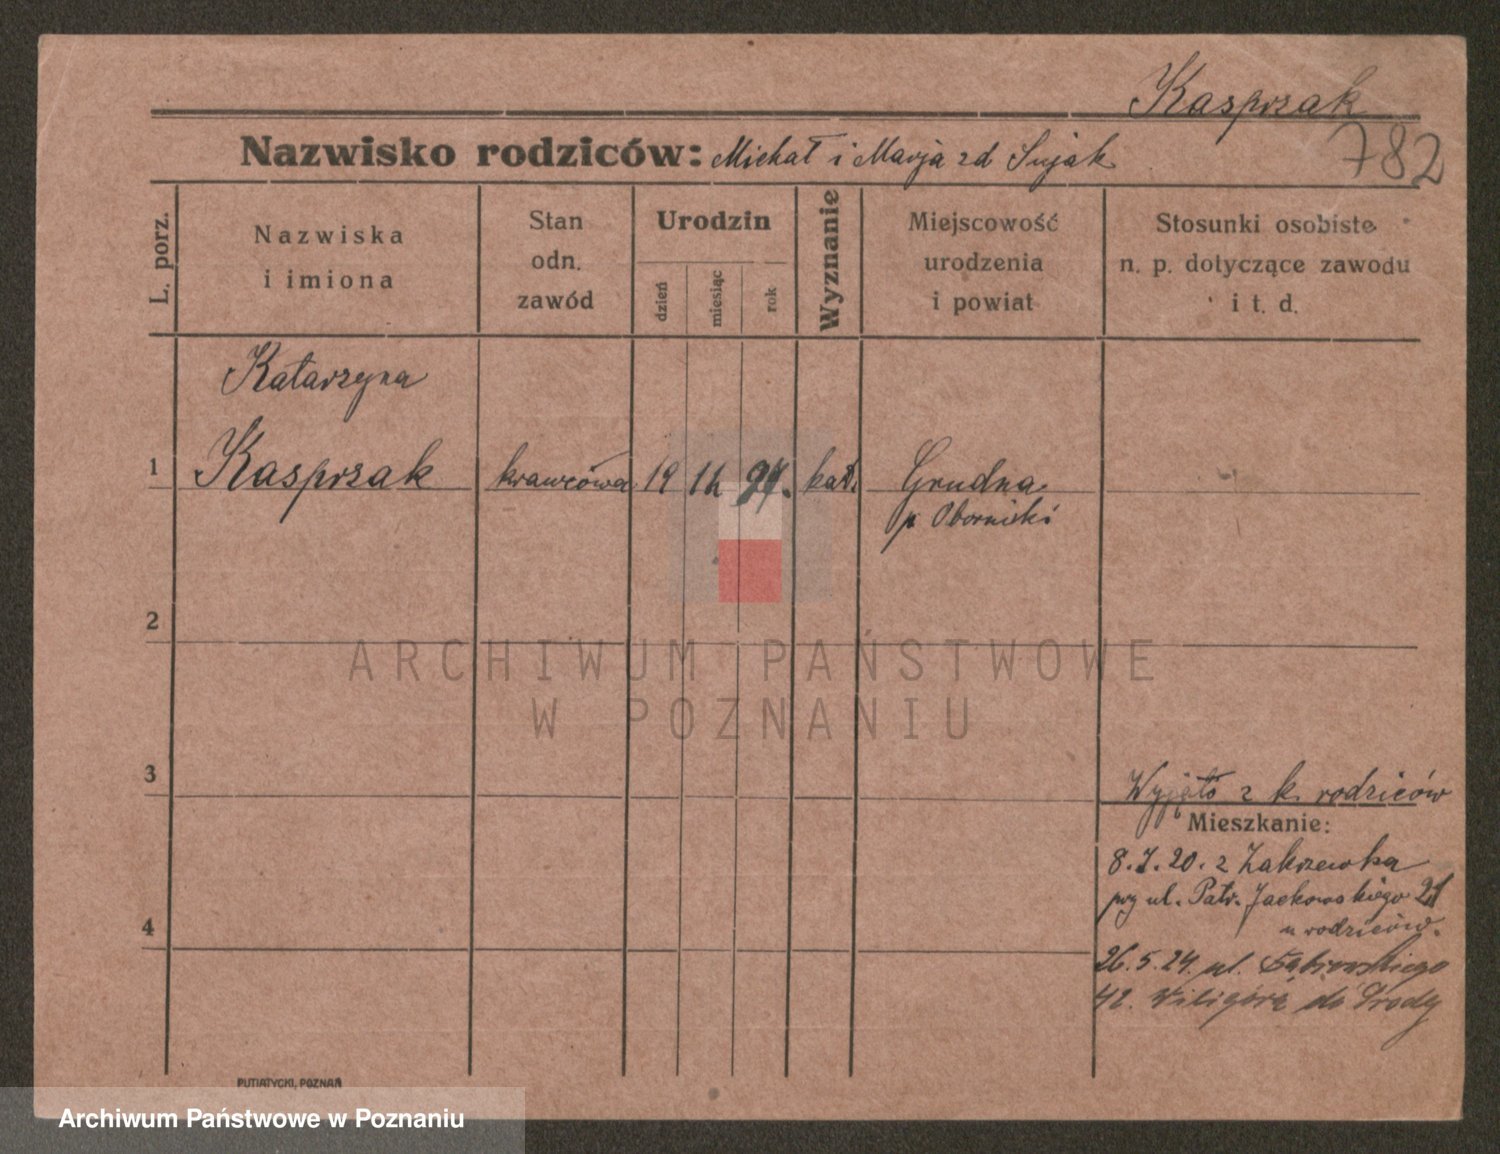 Kasprzak
782
Nazwisko rodziców: Michał i Marja zd Sujak
L. porz.
Nazwiska
i imiona
Stan
odn.
zawód
Urodzin
dzień
miesiąc
rok
Wyznanie
Miejscowość
urodzenia
i powiat
Stosunki osobiste
n. p. dotyczące zawodu
i t. d.
Katarzyna
1 Kasprzak krawcówa 19 11 97. kat. Grudna
p Obornicki
2
ARCHIWUM PAŃSTWOWE
W POZNANIU
3
Wyjęto z k. rodziców
Mieszkanie:
8.7.20. z Zakrzewka
prz ul. Patr. Jackowskiego 21
u rodziców.
4
26.5.24. ul. Dąbrowskiego
42. do Środy
PUTIATYCKI, POZNAŃ
Archiwum Państwowe w Poznaniu